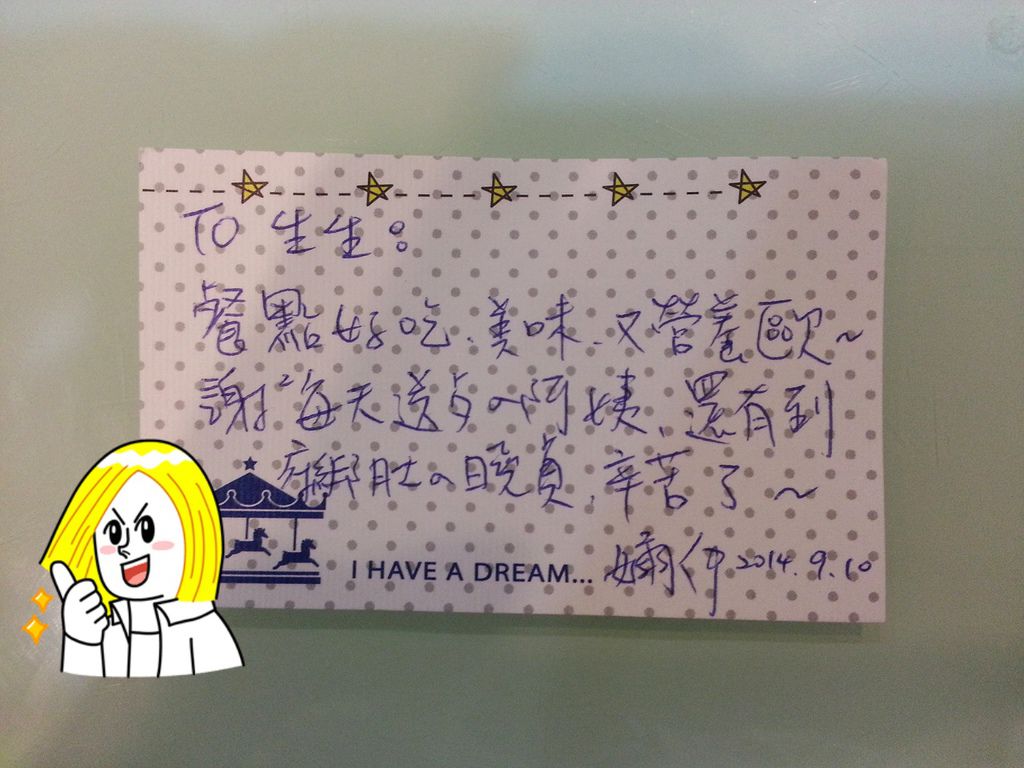 TO 生生:
餐點好吃、美味、又營養歐~
謝〃每天送歺の阿姨、還有到
府綁肚の曉貞、辛苦了~
I HAVE A DREAM... 仲 2014.9.10